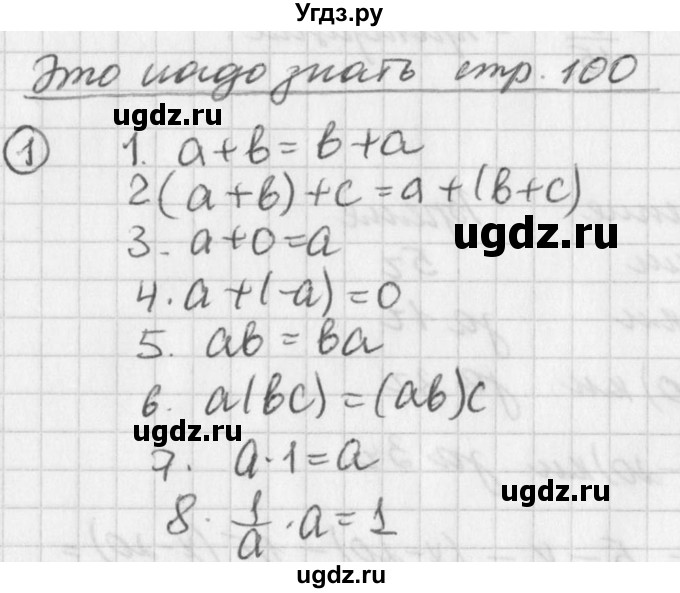 Угдз.ру
Это надо знать стр. 100
1 1. a+b=b+a
ugdz.ru
2(a+b)+c=a+(b+c)
ugdz.ru
3. a+0=a
4. a+(-a)=0
5. ab=ba
6. a(bc)=(ab)c
ugdz.ru
7. a·1=a
ugdz.ru
8. 1/a·a=1
ugdz.ru